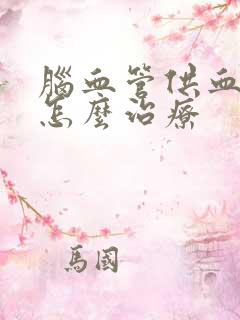 腦血管供血
怎麼治療
馬國